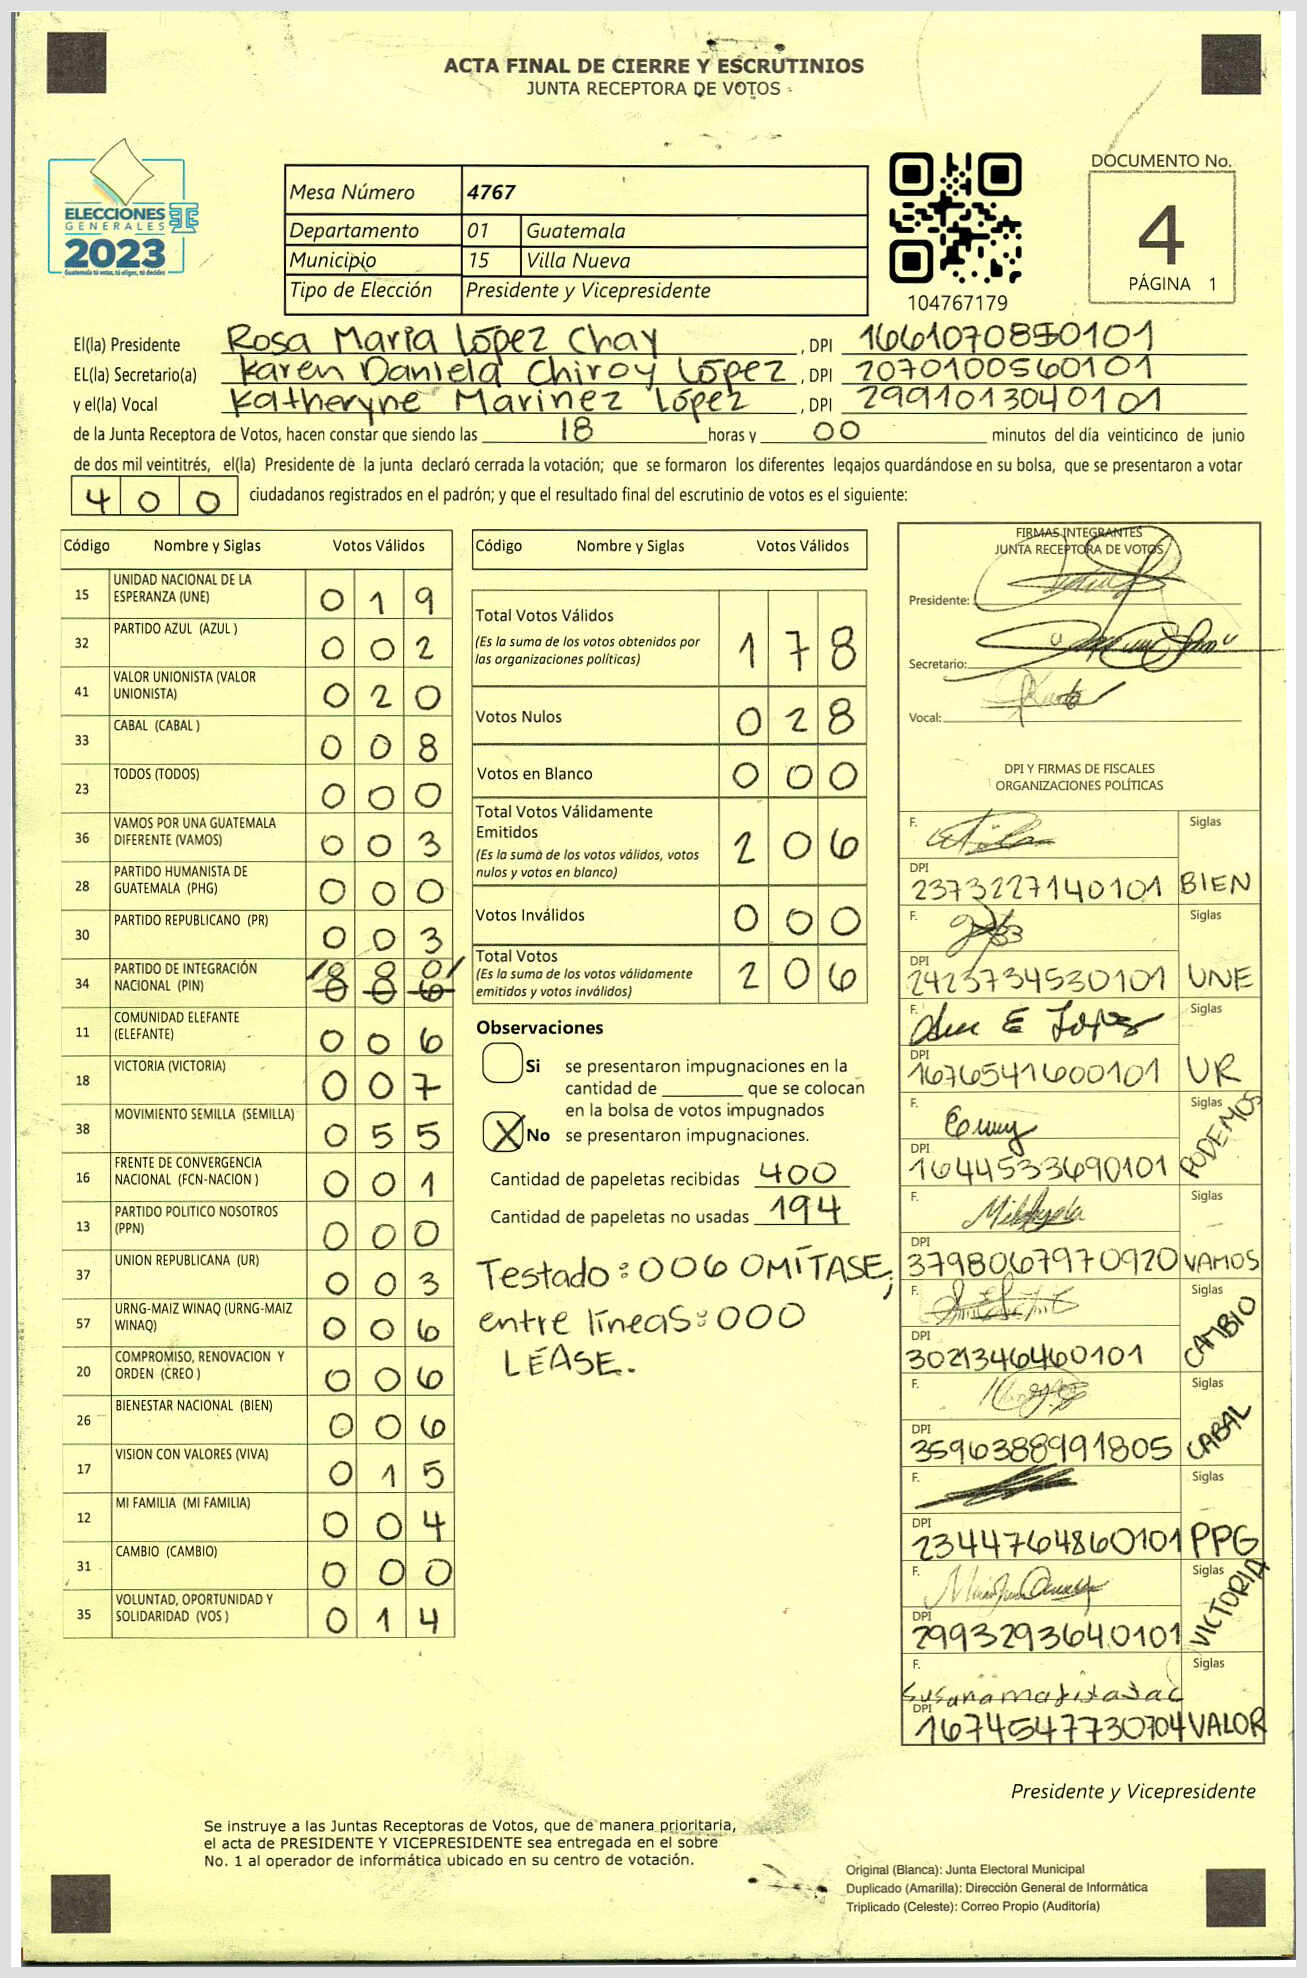 ACTA FINAL DE CIERRE Y ESCRUTINIOS
JUNTA RECEPTORA DE VOTOS
ELECCIONES
GENERALES
2023
Guatemala tú votas, tú eliges, tú decides
Mesa Número 4767
Departamento 01 Guatemala
Municipio 15 Villa Nueva
Tipo de Elección Presidente y Vicepresidente
104767179
DOCUMENTO No.
4
PÁGINA 1
El(la) Presidente Rosa María López Chay, DPI
EL(la) Secretario(a) Karen Daniela Chiroy López, DPI 2070100560101
y el(la) Vocal Katheryne Marinez López, DPI 2991013040101
de la Junta Receptora de Votos, hacen constar que siendo las 18 horas y 00 minutos del día veinticinco de junio
de dos mil veintitrés, el(la) Presidente de la junta declaró cerrada la votación; que se formaron los diferentes legajos guardándose en su bolsa, que se presentaron a votar
400 ciudadanos registrados en el padrón; y que el resultado final del escrutinio de votos es el siguiente:
Código Nombre y Siglas Votos Válidos
15 UNIDAD NACIONAL DE LA
ESPERANZA (UNE) 019
32 PARTIDO AZUL (AZUL ) 002
41 VALOR UNIONISTA (VALOR
UNIONISTA) 020
33 CABAL (CABAL ) 008
23 TODOS (TODOS) 000
36 VAMOS POR UNA GUATEMALA
DIFERENTE (VAMOS) 003
28 PARTIDO HUMANISTA DE
GUATEMALA (PHG) 000
30 PARTIDO REPUBLICANO (PR) 003
34 PARTIDO DE INTEGRACIÓN
NACIONAL (PIN) 000 006
11 COMUNIDAD ELEFANTE
(ELEFANTE) 006
18 VICTORIA (VICTORIA) 007
38 MOVIMIENTO SEMILLA (SEMILLA) 055
16 FRENTE DE CONVERGENCIA
NACIONAL (FCN-NACION ) 001
13 PARTIDO POLITICO NOSOTROS
(PPN) 000
37 UNION REPUBLICANA (UR) 003
57 URNG-MAIZ WINAQ (URNG-MAIZ
WINAQ) 006
20 COMPROMISO, RENOVACION Y
ORDEN (CREO ) 006
26 BIENESTAR NACIONAL (BIEN) 006
17 VISION CON VALORES (VIVA) 015
12 MI FAMILIA (MI FAMILIA) 004
31 CAMBIO (CAMBIO) 000
35 VOLUNTAD, OPORTUNIDAD Y
SOLIDARIDAD (VOS ) 014
Código Nombre y Siglas Votos Válidos
Total Votos Válidos 178
(Es la suma de los votos obtenidos por
las organizaciones políticas)
Votos Nulos 028
Votos en Blanco 000
Total Votos Válidamente
Emitidos 206
(Es la suma de los votos válidos, votos
nulos y votos en blanco)
Votos Inválidos 000
Total Votos 206
(Es la suma de los votos válidamente
emitidos y votos inválidos)
Observaciones
Si se presentaron impugnaciones en la
cantidad de ________ que se colocan
en la bolsa de votos impugnados
X No se presentaron impugnaciones.
Cantidad de papeletas recibidas 400
Cantidad de papeletas no usadas 194
Testado: 006 OMÍTASE,
entre líneas: 000
LÉASE.
FIRMAS INTEGRANTES
JUNTA RECEPTORA DE VOTOS
Presidente:
Secretario:
Vocal:
DPI Y FIRMAS DE FISCALES
ORGANIZACIONES POLÍTICAS
F. Siglas
DPI
2373227140101 BIEN
F. Siglas
DPI
2423734530101 UNE
F. Siglas
DPI
1676541600101 UR
F. Siglas
DPI
1644533690101 PODEMOS
F. Siglas
DPI
3798067970920 VAMOS
F. Siglas
DPI
3021346460101 CAMBIO
F. Siglas
DPI
3596388991805 CABAL
F. Siglas
DPI
2344764860101 PPG
F. Siglas
DPI
2993293640101 VICTORIA
F. Siglas
DPI
1674547730704 VALOR
Presidente y Vicepresidente
Se instruye a las Juntas Receptoras de Votos, que de manera prioritaria,
el acta de PRESIDENTE Y VICEPRESIDENTE sea entregada en el sobre
No. 1 al operador de informática ubicado en su centro de votación.
Original (Blanca): Junta Electoral Municipal
Duplicado (Amarilla): Dirección General de Informática
Triplicado (Celeste): Correo Propio (Auditoría)